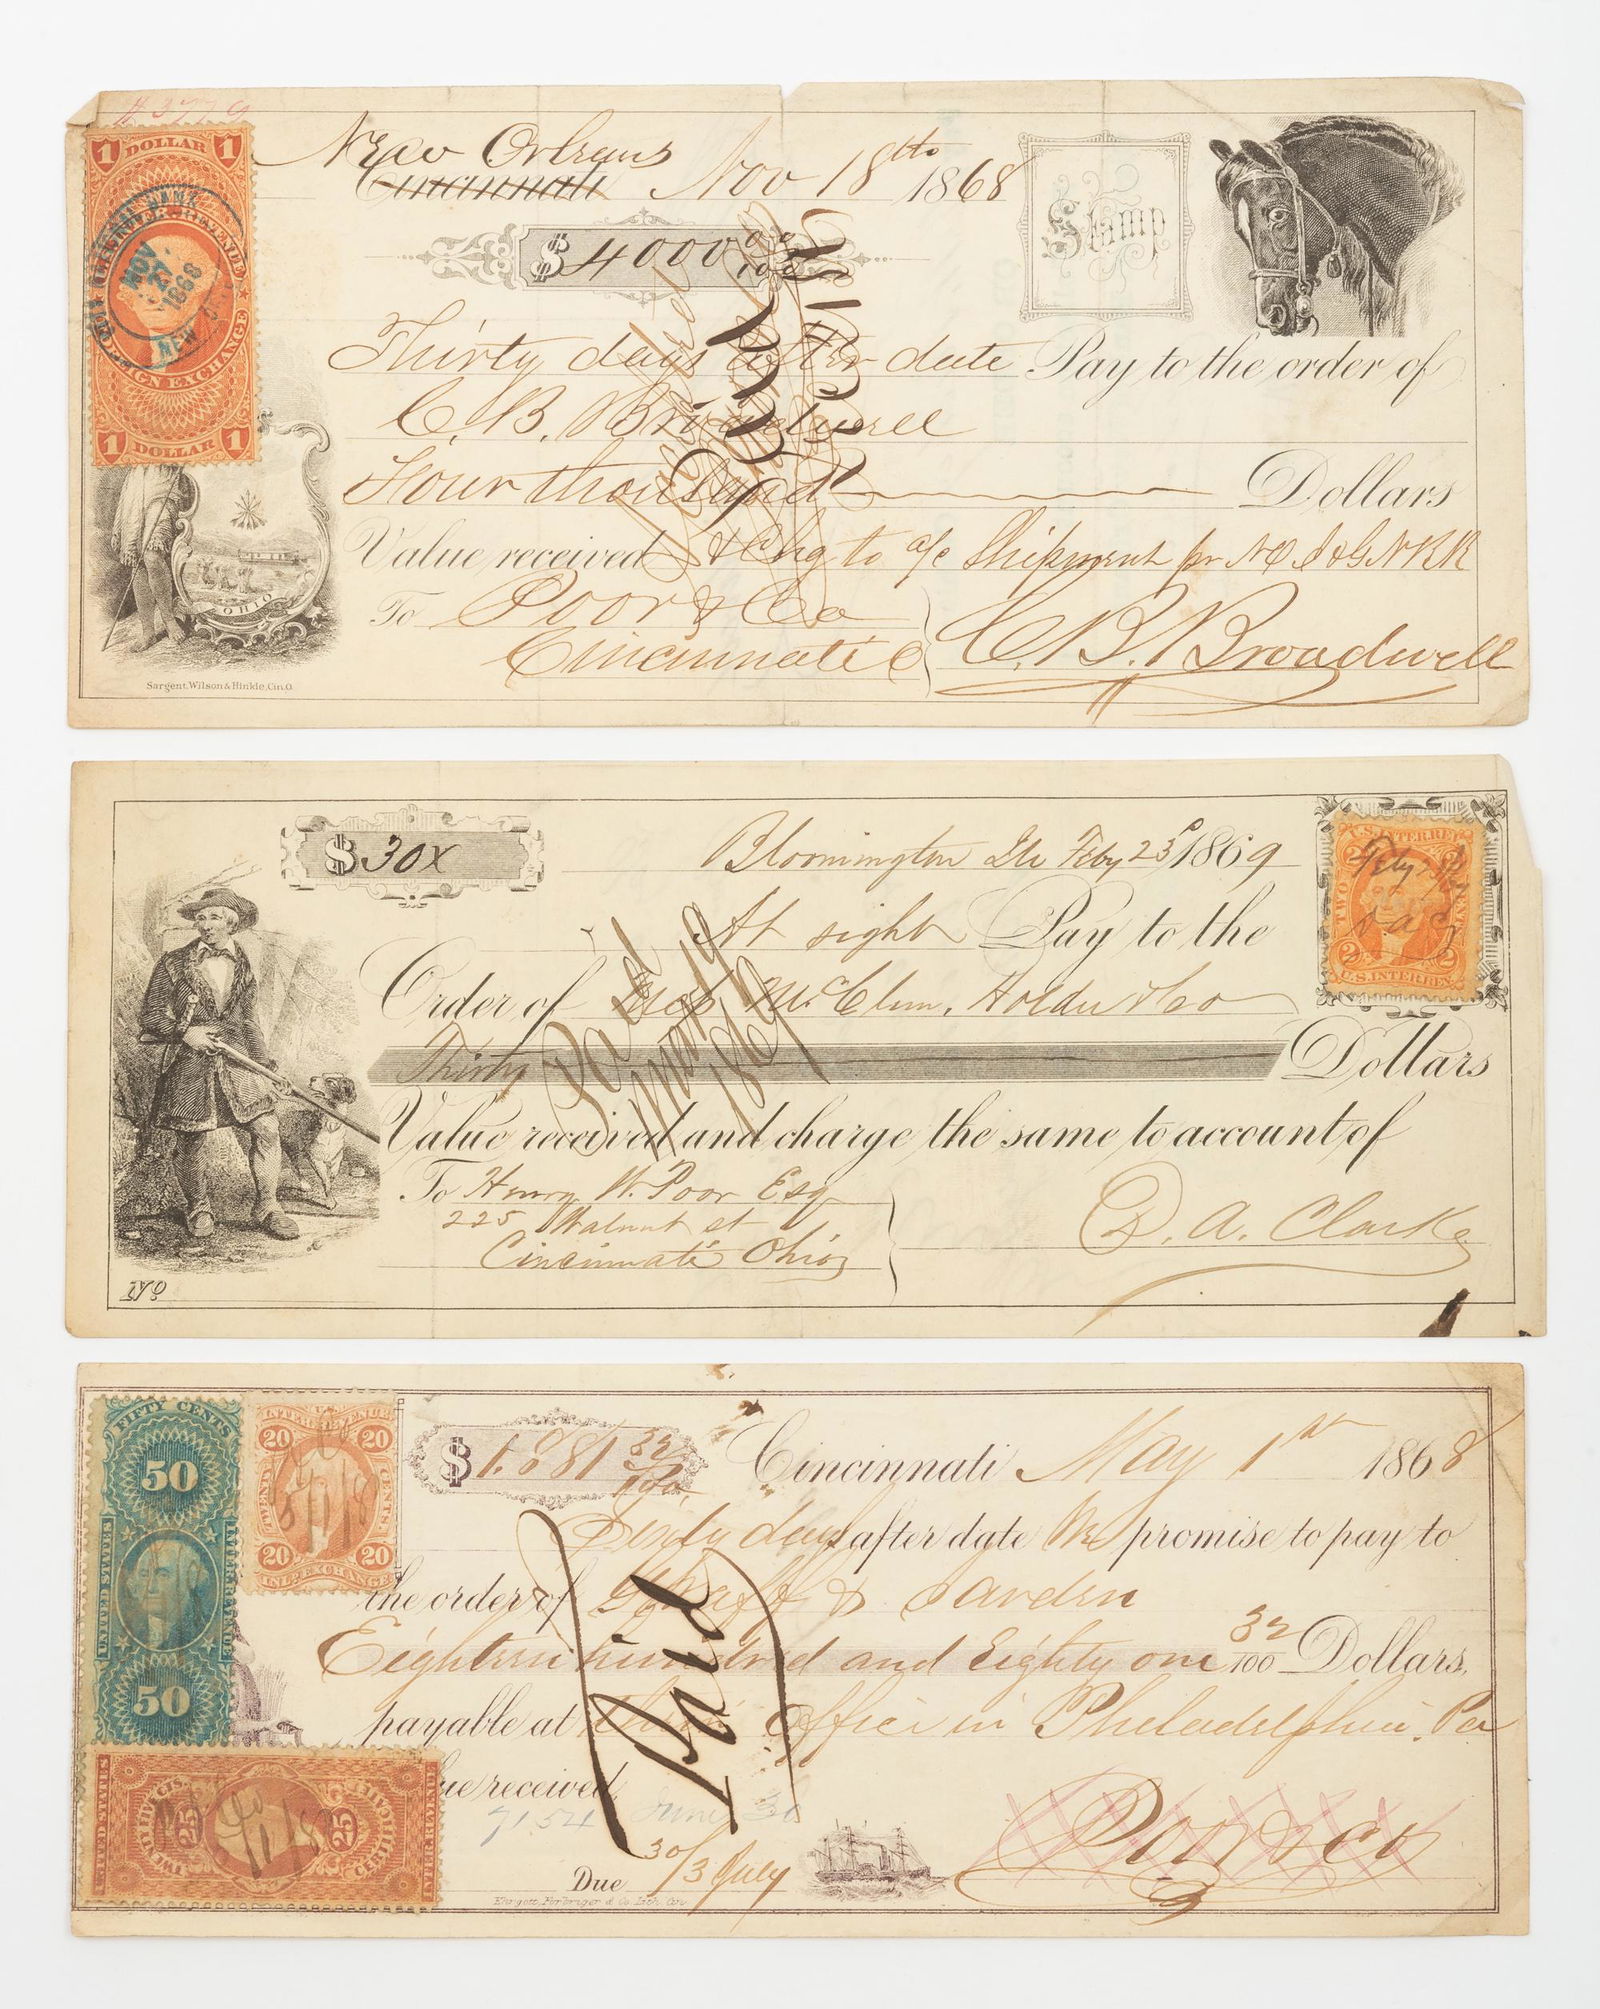 1 DOLLAR 1
INTER. REVENUE
NOV
27
1868
NEW
EXCHANGE
1 DOLLAR 1
New Orleans
Cincinnati Nov 18th 1868
Stamp
$ 4000 00/100
Thirty days after date Pay to the order of
C. B. Broadwell
Four thousand Dollars
Value received & Chg to a/c Shipment pr N.O. J & G. N R R
To Poor & Co
Cincinnati O
C. B. Broadwell
OHIO
Sargent, Wilson & Hinkle, Cin. O.
Paid
$ 30x
Bloomington Ills Feby 23d 1869
At sight Pay to the
Order of McClun, Holder & Co
Thirty Dollars
Value received and charge the same to account of
To Henry W. Poor Esq
225 Walnut st
Cincinnati Ohio
D. A. Clarke
No
U.S. INTER. REV.
TWO CENTS
2 2
U.S. INTER. REV.
Feby 23d
D. A. C.
Paid
1869
FIFTY CENTS
50
UNITED STATES
INTER. REVENUE
50
INTER. REVENUE
20 20
TWENTY CENTS
5/1/8
20 20
INL. EXCHANGE
$ 1.881 32/100
Cincinnati May 1st 1868
Sixty days after date We promise to pay to
the order of Graff &
Eighteen hundred and Eighty one 32/100 Dollars,
payable at their Office in Philadelphia. Pa
ue received
7154 June 30
Due 30/3 July
Poor & Co
Paid
UNITED STATES
TWENTY FIVE CTS.
25 25
CERTIFICATE
INTER. REVENUE